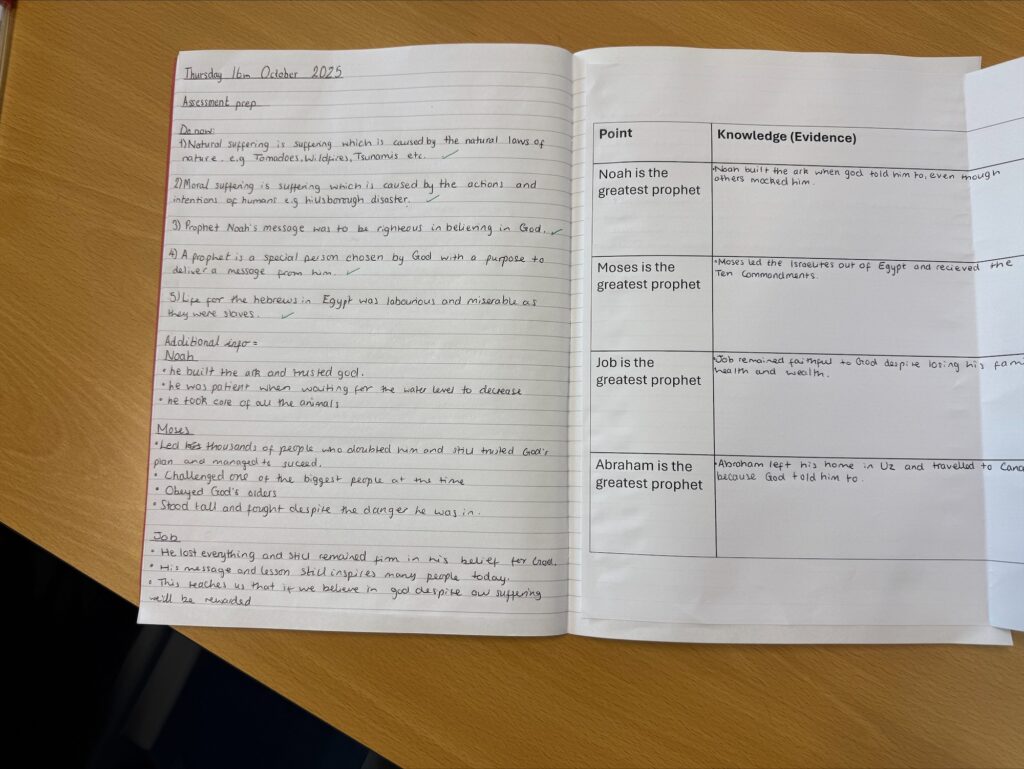 Thursday 16th October 2025
Assessment prep
Do now:
1) Natural suffering is suffering which is caused by the natural laws of
nature. e.g Tornadoes, Wildfires, Tsunamis etc.
2) Moral suffering is suffering which is caused by the actions and
intentions of humans e.g hillsborough disaster.
3) Prophet Noah's message was to be righteous in believing in God.
4) A prophet is a special person chosen by God with a purpose to
deliver a message from him.
5) Life for the hebrews in Egypt was labourious and miserable as
they were slaves.
Additional info =
Noah
• he built the ark and trusted god.
• he was patient when waiting for the water level to decrease
• he took care of all the animals
Moses
• Led thousands of people who doubted him and still trusted God's
plan and managed to suceed.
• Challenged one of the biggest people at the time
• Obeyed God's orders
• Stood tall and fought despite the danger he was in.
Job
• He lost everything and still remained firm in his belief for God.
• His message and lesson still inspires many people today.
• This teaches us that if we believe in god despite our suffering
we'll be rewarded
Point
Knowledge (Evidence)
Noah is the
greatest prophet
• Noah built the ark when god told him to, even though
others mocked him.
Moses is the
greatest prophet
• Moses led the Israelites out of Egypt and recieved the
Ten Commandments.
Job is the
greatest prophet
• Job remained faithful to God despite losing his fam
health and wealth.
Abraham is the
greatest prophet
• Abraham left his home in Uz and travelled to Cana
because God told him to.